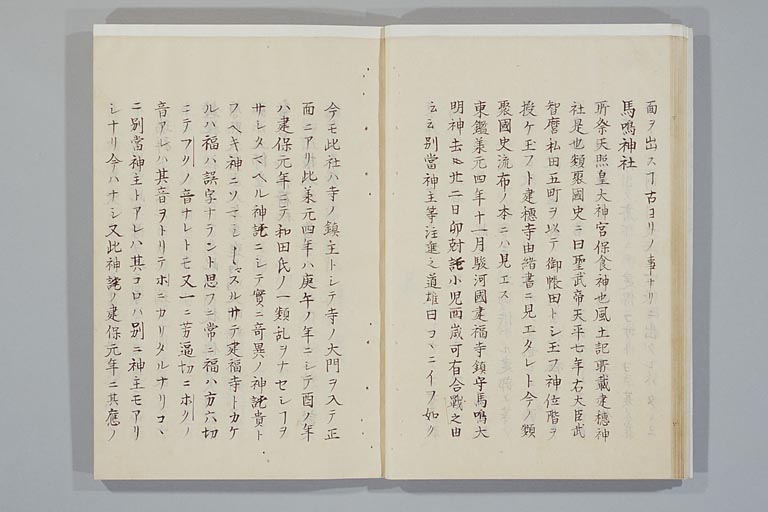 面ヲ出スヿ古ヨリノ事ナリ
馬鳴神社
所祭天照皇大神宮保食神也風土記所載建穂神
社是也類聚國史ニ曰聖武帝天平七年右大臣武
智麿私田五町ヲ以テ御帳田トシ玉フ神位階ヲ
授ケ玉フト建穂寺由緒書ニ見エタレト今ノ類
聚國史流布ノ本ニハ見エス
東鑑美元四年十一月駿河國建福寺鎮守馬鳴大
明神去ル廿二日卯尅託小児酉歳可有合戰之由
云云別當神主等注進之道雄曰コヽニイフ如ク
今モ此社ハ寺ノ鎮主トシテ寺ノ大門ヲ入テ正
面ニアリ此美元四年ハ庚午ノ年ニシテ酉ノ年
ハ建保元年ニテ和田氏ノ一類乱ヲナセシヿヲ
サシタマヘル神託ニシテ實ニ奇異ノ神託貴ト
フヘキ神ニソマシ〱マスルサテ建福寺トカケ
ルハ福ハ誤字ナラント思フニ常ニ福ハ方六切
ニテフクノ音ナレトモ又一ニ芳逼切ニホクノ
音アレハ其音ヲトリテホニカリタルナリコヽ
ニ別當神主トアレハ其コロハ別ニ神主モアリ
シナリ今ハナシ又此神託ノ建保元年ニ其應ノ